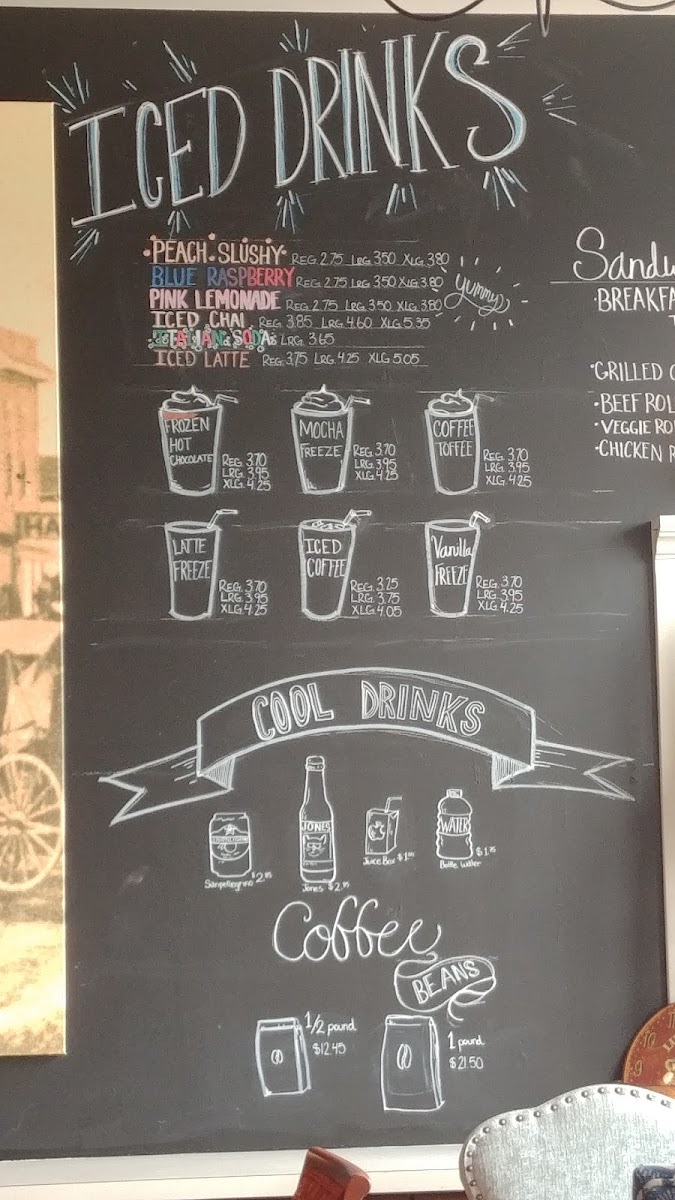 ICED DRINKS
PEACH SLUSHY REG 2.75 LRG 3.50 XLG 3.80
BLUE RASPBERRY REG 2.75 LRG 3.50 XLG 3.80
PINK LEMONADE REG 2.75 LRG 3.50 XLG 3.80
yummy
ICED CHAI REG 3.85 LRG 4.60 XLG 5.35
ITALIAN SODAs LRG 3.65
ICED LATTE REG 3.75 LRG 4.25 XLG 5.05
FROZEN
HOT
CHOCOLATE
REG. 3.70
LRG. 3.95
XLG. 4.25
MOCHA
FREEZE
REG. 3.70
LRG. 3.95
XLG. 4.25
COFFEE
TOFFEE
REG. 3.70
LRG. 3.95
XLG. 4.25
LATTE
FREEZE
REG. 3.70
LRG. 3.95
XLG. 4.25
ICED
COFFEE
REG. 3.25
LRG. 3.75
XLG. 4.05
Vanilla
FREEZE
REG. 3.70
LRG. 3.95
XLG. 4.25
Sandw
·BREAKFA
T
·GRILLED C
·BEEF ROL
·VEGGIE RO
·CHICKEN R
COOL DRINKS
Sanpellegrino
JONES
Jones
Juice Box
WATER
Bottle Water
Coffee
BEANS
1/2 pound
$12.45
1 pound
$21.50